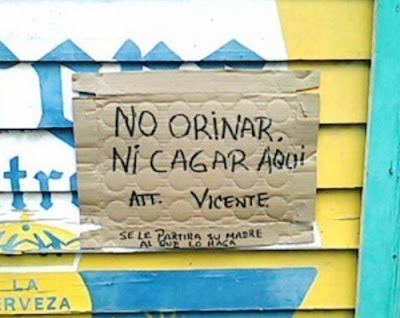 NO ORINAR.
NI CAGAR AQUI
ATT. VICENTE
SE LE PARTIRA SU MADRE
AL QUE LO HAGA
LA
CERVEZA